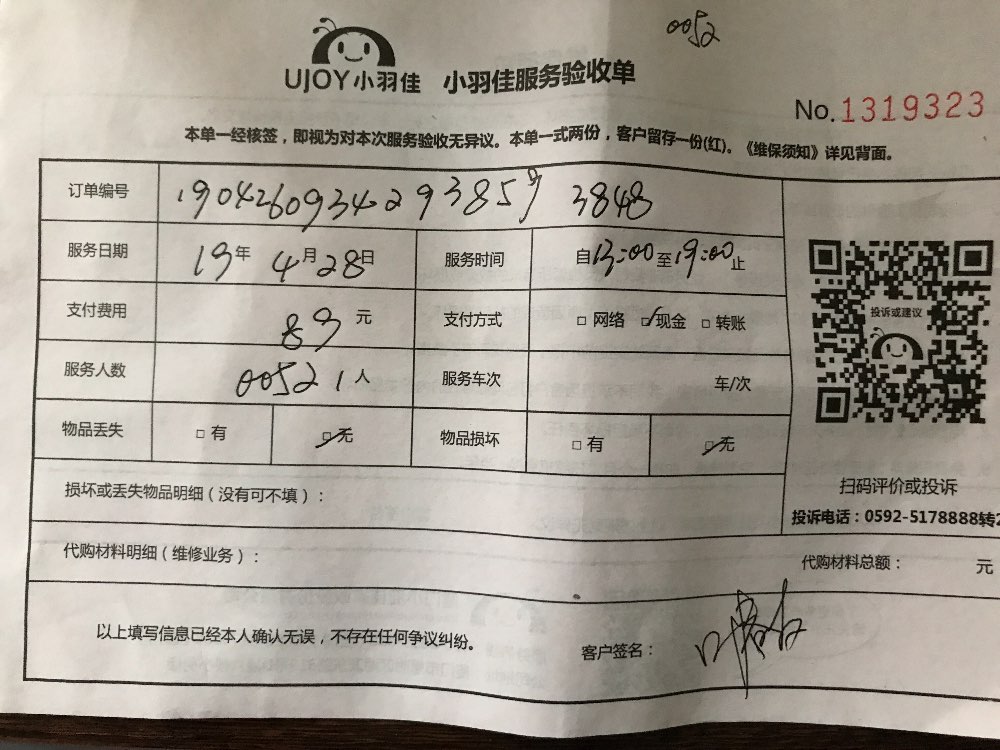 0052
UJOY小羽佳 小羽佳服务验收单
No.1319323
本单一经核签，即视为对本次服务验收无异议。本单一式两份，客户留存一份(红)。《维保须知》详见背面。
订单编号 19042609340293859 3848
服务日期 19年4月28日 服务时间 自13:00至19:00止
支付费用 89元 支付方式 □ 网络 ☑现金 □ 转账
投诉或建议
服务人数 0052 1人 服务车次 车/次
物品丢失 □ 有 ☑无 物品损坏 □ 有 ☑无
损坏或丢失物品明细（没有可不填）：
扫码评价或投诉
投诉电话：0592-5178888转2
代购材料明细（维修业务）： 代购材料总额： 元
以上填写信息已经本人确认无误，不存在任何争议纠纷。 客户签名：